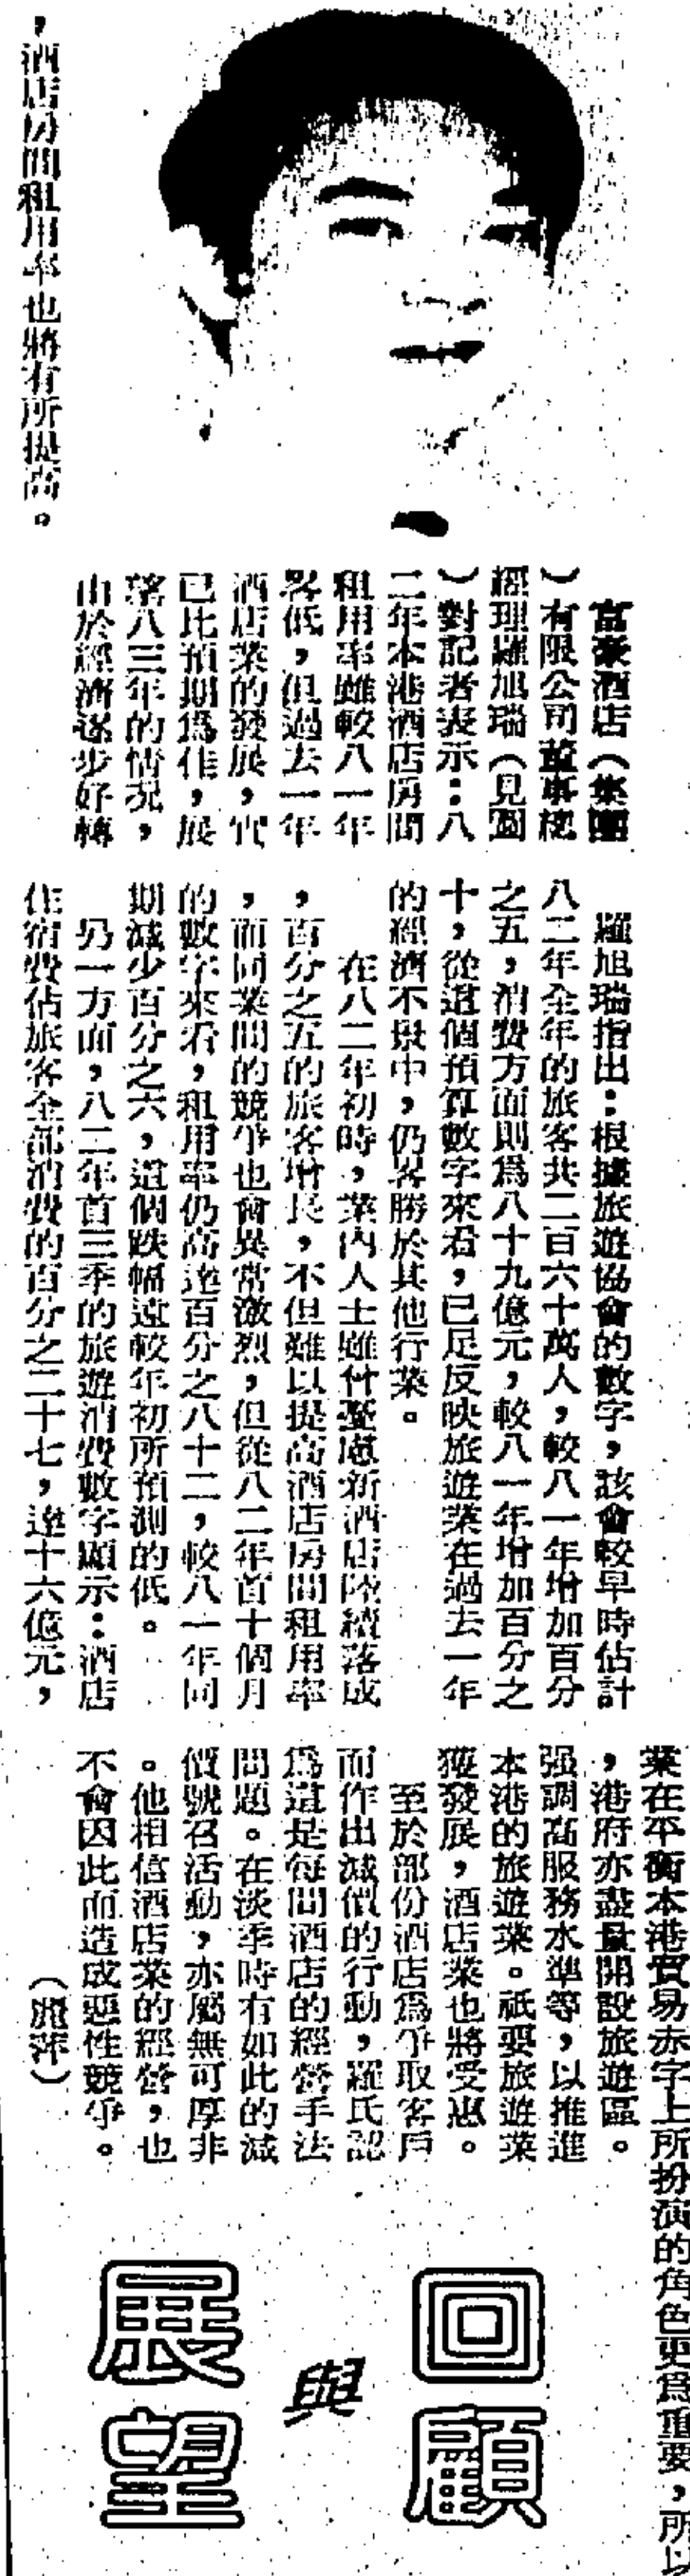 富豪酒店（集團
）有限公司董事總
經理羅旭瑞（見圖
）對記者表示：八
二年本港酒店房間
租用率雖較八一年
畧低，但過去一年
酒店業的發展，實
已比預期爲佳，展
望八三年的情況，
由於經濟逐步好轉
，酒店房間租用率也將有所提高。
羅旭瑞指出：根據旅遊協會的數字，該會較早時估計
八二年全年的旅客共二百六十萬人，較八一年增加百分
之五，消費方面則爲八十九億元，較八一年增加百分之
十，從這個預算數字來看，已足反映旅遊業在過去一年
的經濟不景中，仍畧勝於其他行業。
在八二年初時，業內人士雖什憂慮新酒店陸續落成
，百分之五的旅客增長，不但難以提高酒店房間租用率
，而同業間的競爭也會異常激烈，但從八二年首十個月
的數字來看，租用率仍高達百分之八十二，較八一年同
期減少百分之六，這個跌幅遠較年初所預測的低。
另一方面，八二年首三季的旅遊消費數字顯示：酒店
住宿費佔旅客全部消費的百分之二十七，達十六億元，
業在平衡本港貿易赤字上所扮演的角色更爲重要，所以
，港府亦盡量開設旅遊區。
强調高服務水準等，以推進
本港的旅遊業。祇要旅遊業
獲發展，酒店業也將受惠。
至於部份酒店爲爭取客戶
而作出減價的行動，羅氏認
爲這是每間酒店的經營手法
問題。在淡季時有如此的減
價號召活動，亦屬無可厚非
。他相信酒店業的經營，也
不會因此而造成惡性競爭。
（麗萍）
回顧
與
展望